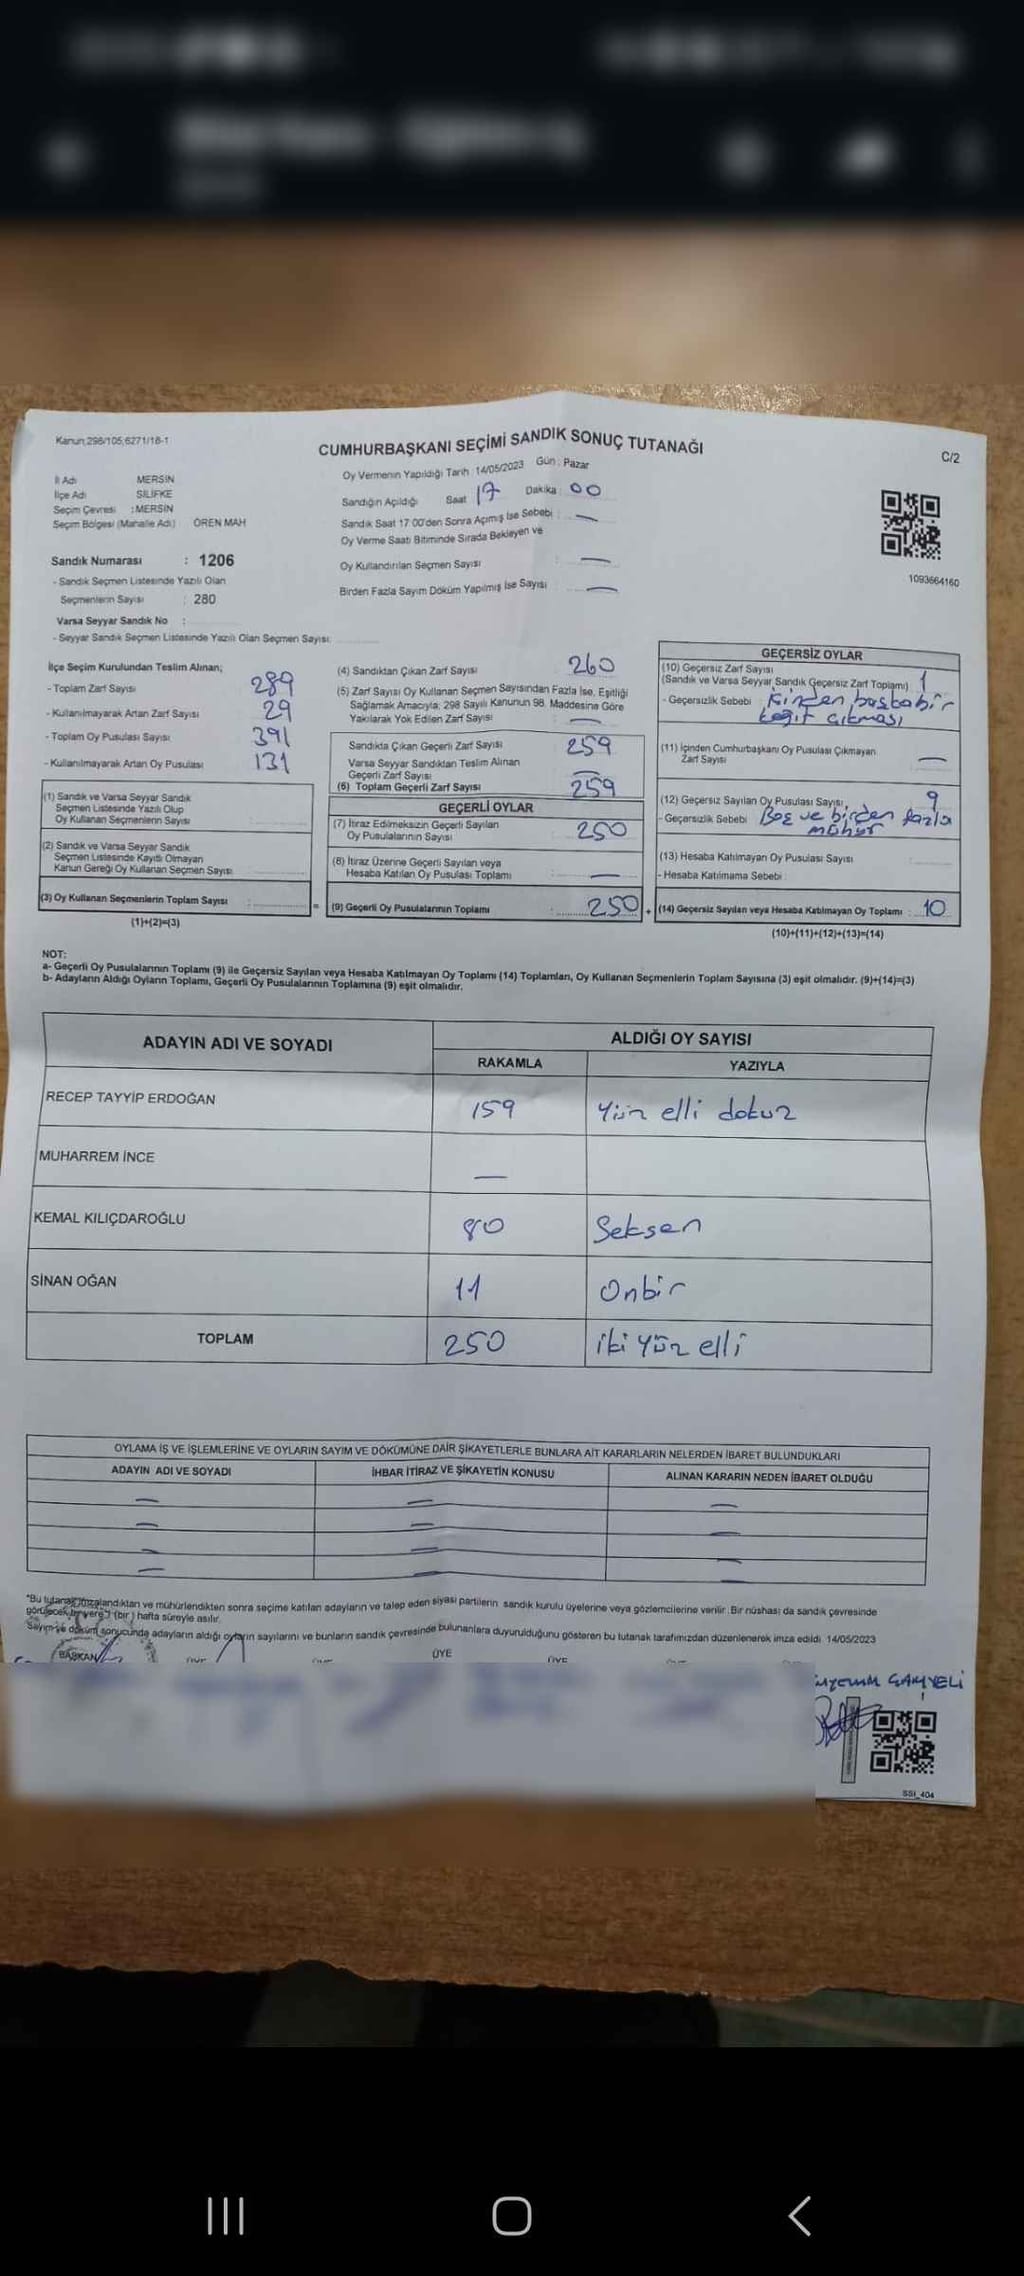 Kanun:298/105,6271/18-1
CUMHURBAŞKANI SEÇİMİ SANDIK SONUÇ TUTANAĞI
C/2
İl Adı MERSİN
İlçe Adı SİLİFKE
Seçim Çevresi :MERSİN
Seçim Bölgesi (Mahalle Adı) ÖREN MAH
Sandık Numarası : 1206
- Sandık Seçmen Listesinde Yazılı Olan
Seçmenlerin Sayısı : 280
Varsa Seyyar Sandık No :
- Seyyar Sandık Seçmen Listesinde Yazılı Olan Seçmen Sayısı:
Oy Vermenin Yapıldığı Tarih :14/05/2023 Gün : Pazar
Sandığın Açıldığı Saat 17 Dakika : 00
Sandık Saat 17:00'den Sonra Açımış İse Sebebi : —
Oy Verme Saati Bitiminde Sırada Bekleyen ve
Oy Kullandırılan Seçmen Sayısı : —
Birden Fazla Sayım Döküm Yapılmış İse Sayısı : —
1093664160
İlçe Seçim Kurulundan Teslim Alınan;
- Toplam Zarf Sayısı 289
- Kullanılmayarak Artan Zarf Sayısı 29
- Toplam Oy Pusulası Sayısı 391
- Kullanılmayarak Artan Oy Pusulası 131
(1) Sandık ve Varsa Seyyar Sandık
Seçmen Listesinde Yazılı Olup
Oy Kullanan Seçmenlerin Sayısı
(2) Sandık ve Varsa Seyyar Sandık
Seçmen Listesinde Kayıtlı Olmayan
Kanun Gereği Oy Kullanan Seçmen Sayısı
(3) Oy Kullanan Seçmenlerin Toplam Sayısı :
(1)+(2)=(3)
(4) Sandıktan Çıkan Zarf Sayısı 260
(5) Zarf Sayısı Oy Kullanan Seçmen Sayısından Fazla İse, Eşitliği
Sağlamak Amacıyla; 298 Sayılı Kanunun 98. Maddesine Göre
Yakılarak Yok Edilen Zarf Sayısı —
Sandıkta Çıkan Geçerli Zarf Sayısı 259
Varsa Seyyar Sandıktan Teslim Alınan
Geçerli Zarf Sayısı —
(6) Toplam Geçerli Zarf Sayısı 259
GEÇERLİ OYLAR
(7) İtiraz Edilmeksizin Geçerli Sayılan
Oy Pusulalarının Sayısı : 250
(8) İtiraz Üzerine Geçerli Sayılan veya
Hesaba Katılan Oy Pusulası Toplamı : —
= (9) Geçerli Oy Pusulalarının Toplamı : 250
GEÇERSİZ OYLAR
(10) Geçersiz Zarf Sayısı
(Sandık ve Varsa Seyyar Sandık Geçersiz Zarf Toplamı) 1
- Geçersizlik Sebebi başbabir
kağıt çıkması
(11) İçinden Cumhurbaşkanı Oy Pusulası Çıkmayan
Zarf Sayısı —
(12) Geçersiz Sayılan Oy Pusulası Sayısı 9
- Geçersizlik Sebebi Boş ve birden fazla
mühür
(13) Hesaba Katılmayan Oy Pusulası Sayısı
- Hesaba Katılmama Sebebi :
+ (14) Geçersiz Sayılan veya Hesaba Katılmayan Oy Toplamı : 10
(10)+(11)+(12)+(13)=(14)
NOT:
a- Geçerli Oy Pusulalarının Toplamı (9) ile Geçersiz Sayılan veya Hesaba Katılmayan Oy Toplamı (14) Toplamları, Oy Kullanan Seçmenlerin Toplam Sayısına (3) eşit olmalıdır. (9)+(14)=(3)
b- Adayların Aldığı Oyların Toplamı, Geçerli Oy Pusulalarının Toplamına (9) eşit olmalıdır.
ADAYIN ADI VE SOYADI ALDIĞI OY SAYISI
RAKAMLA YAZIYLA
RECEP TAYYİP ERDOĞAN 159 Yüz elli dokuz
MUHARREM İNCE —
KEMAL KILIÇDAROĞLU 80 Seksen
SİNAN OĞAN 11 Onbir
TOPLAM 250 iki yüz elli
OYLAMA İŞ VE İŞLEMLERİNE VE OYLARIN SAYIM VE DÖKÜMÜNE DAİR ŞİKAYETLERLE BUNLARA AİT KARARLARIN NELERDEN İBARET BULUNDUKLARI
ADAYIN ADI VE SOYADI İHBAR İTİRAZ VE ŞİKAYETİN KONUSU ALINAN KARARIN NEDEN İBARET OLDUĞU
— — —
— — —
— — —
— — —
"Bu tutanak imzalandıktan ve mühürlendikten sonra seçime katılan adayların ve talep eden siyasi partilerin sandık kurulu üyelerine veya gözlemcilerine verilir. Bir nüshası da sandık çevresinde
görülecek bir yere 1 (bir) hafta süreyle asılır.
Sayım ve döküm sonucunda adayların aldığı oyların sayılarını ve bunların sandık çevresinde bulunanlara duyurulduğunu gösteren bu tutanak tarafımızdan düzenlenerek imza edildi. 14/05/2023
BAŞKAN ÜYE ÜYE ÜYE ÜYE
SSI_404